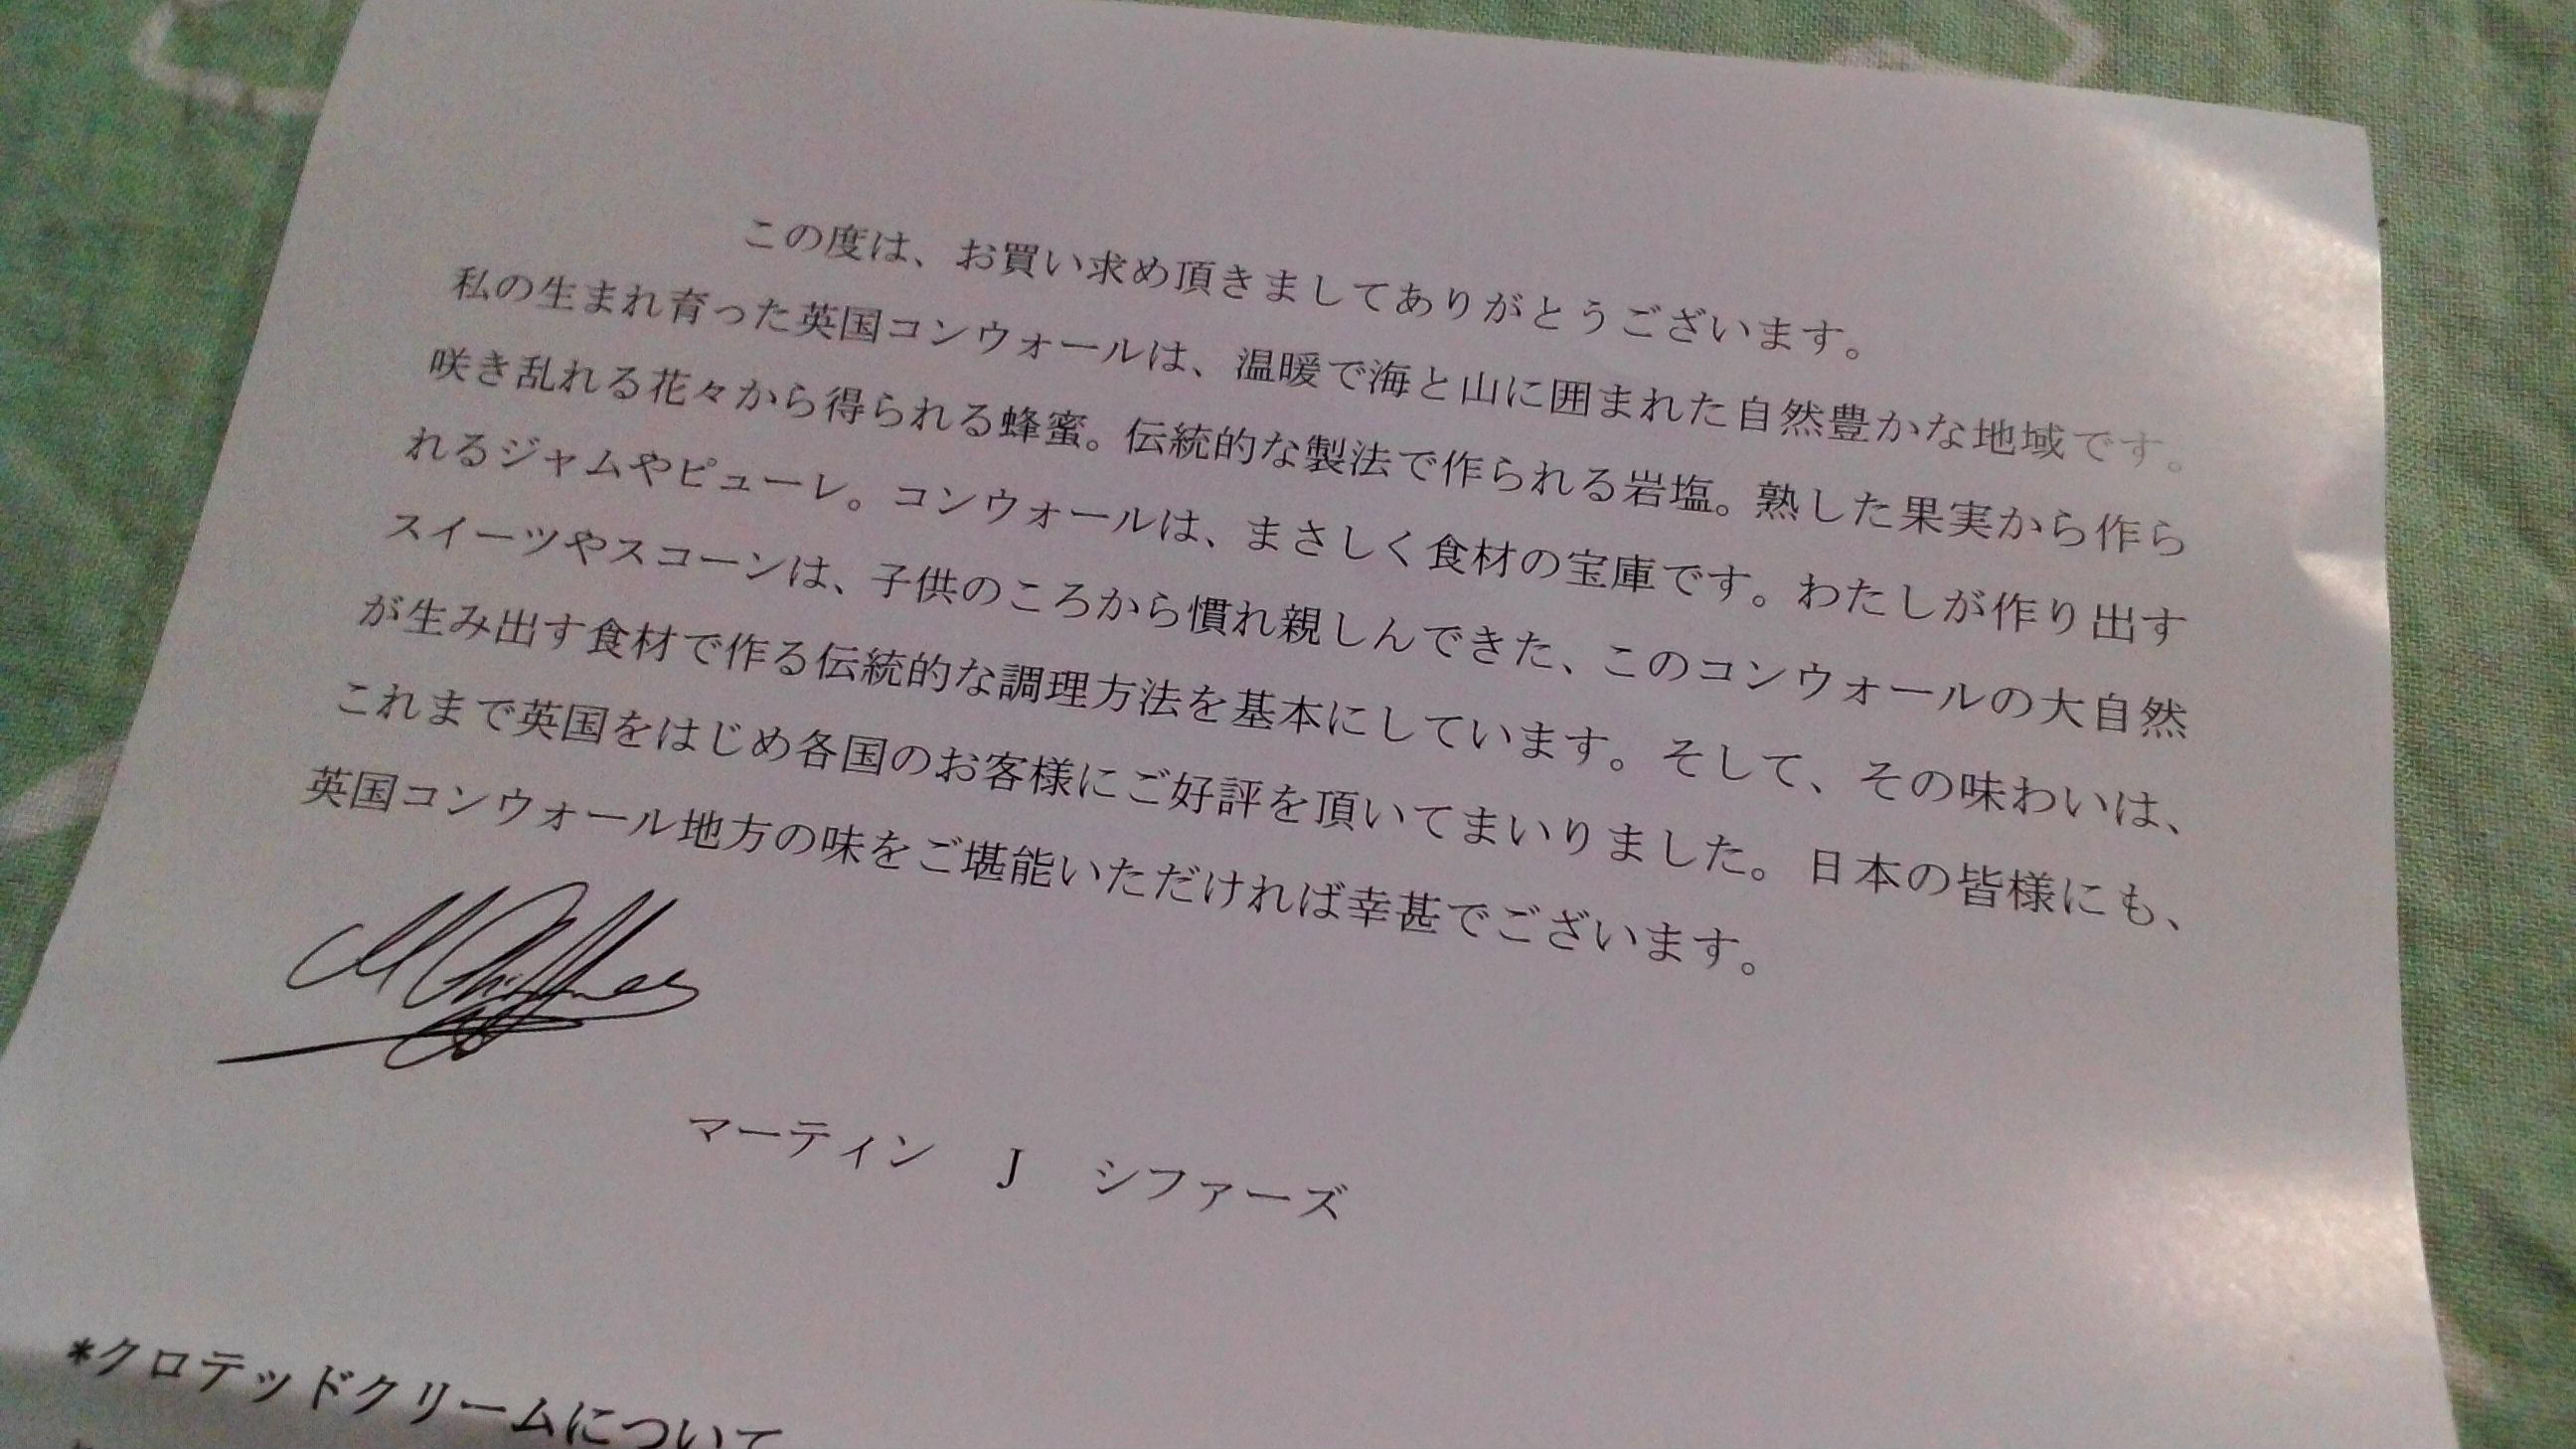 この度は、お買い求め頂きましてありがとうございます。
私の生まれ育った英国コンウォールは、温暖で海と山に囲まれた自然豊かな地域です。
咲き乱れる花々から得られる蜂蜜。伝統的な製法で作られる岩塩。熟した果実から作ら
れるジャムやピューレ。コンウォールは、まさしく食材の宝庫です。わたしが作り出す
スイーツやスコーンは、子供のころから慣れ親しんできた、このコンウォールの大自然
が生み出す食材で作る伝統的な調理方法を基本にしています。そして、その味わいは、
これまで英国をはじめ各国のお客様にご好評を頂いてまいりました。日本の皆様にも、
英国コンウォール地方の味をご堪能いただければ幸甚でございます。
マーティン　J　シファーズ
*クロテッドクリームについて